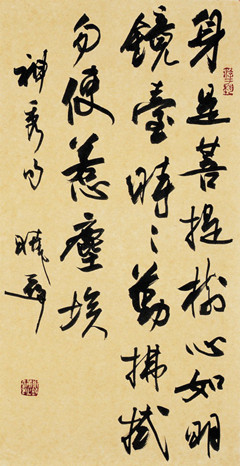 身是菩提樹心如明
鏡臺時々勤拂拭
勿使惹塵埃
神秀句